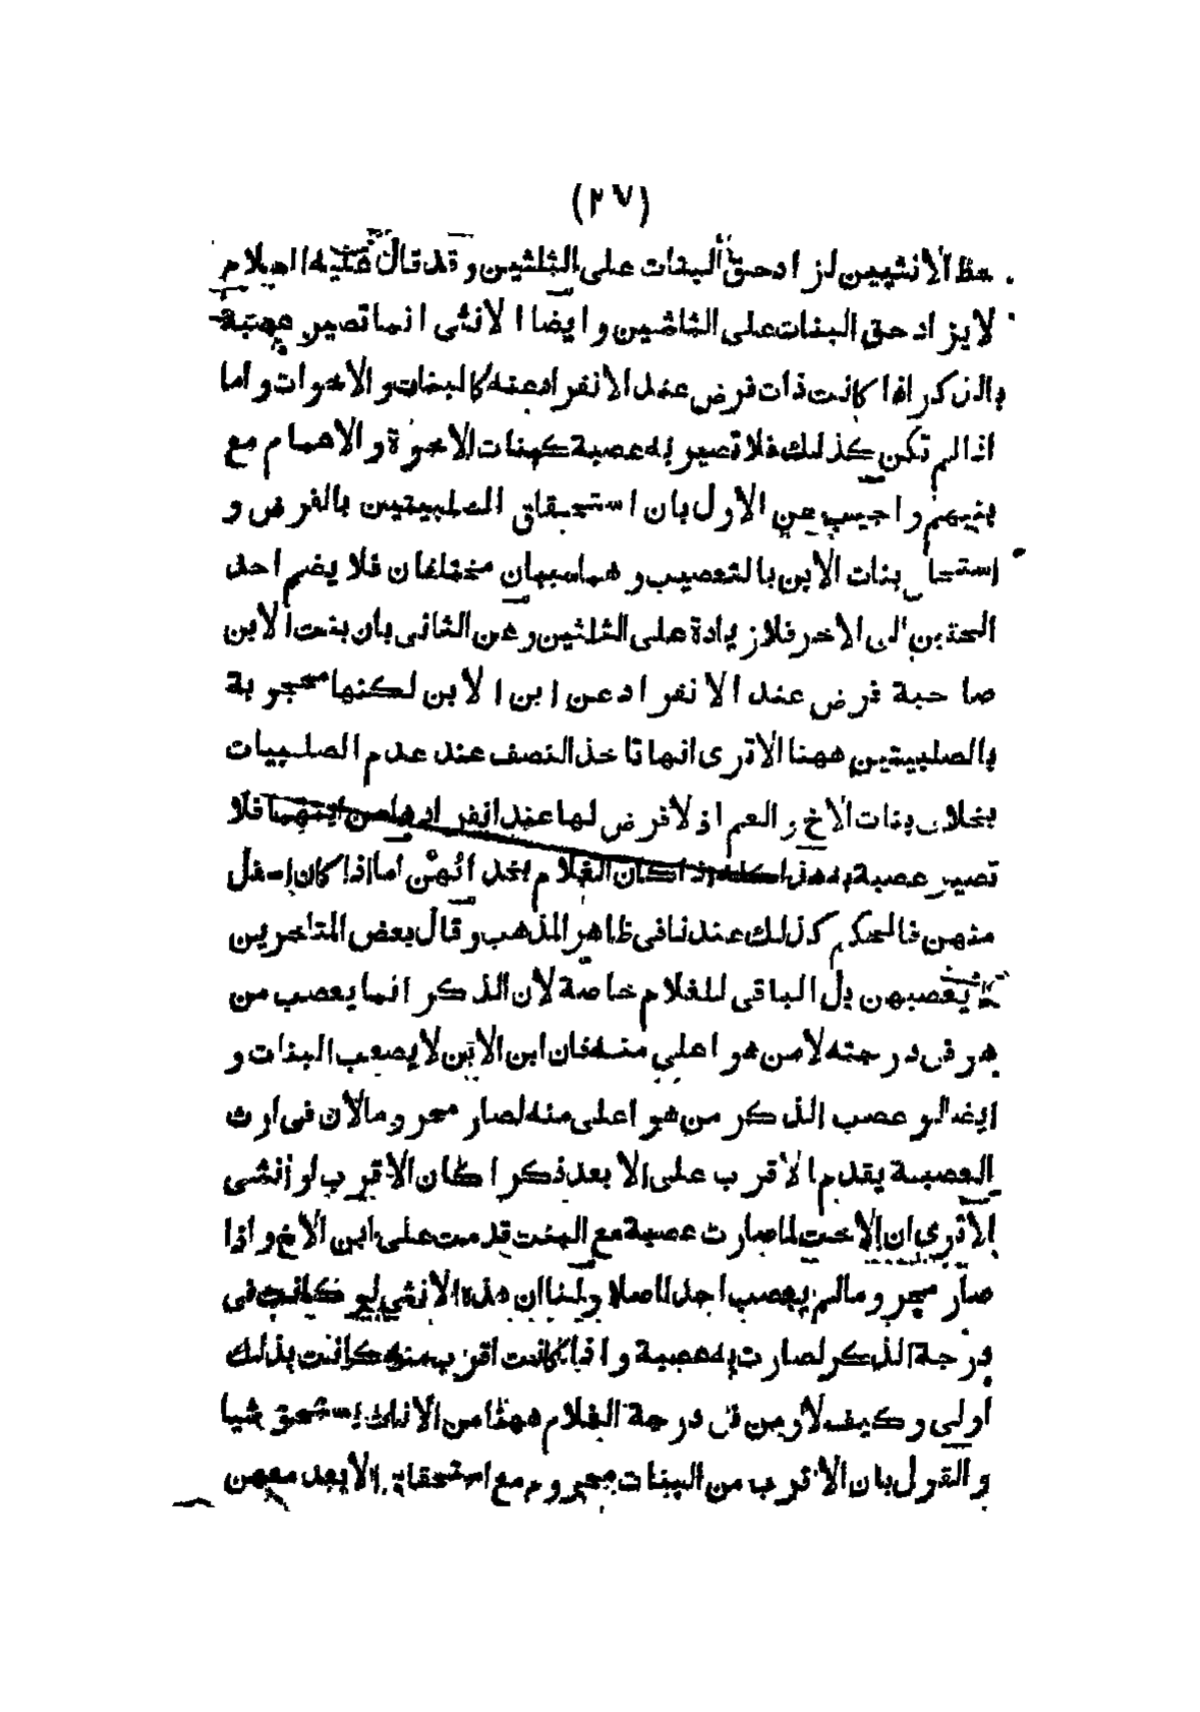 (٢٧)
حظ الانثيين لزاد حق البنات على الثلثين وقد قال عليه السلام
لا يزاد حق البنات على الثلثين وايضا الانثى انما تصير عصبة
بالذكر اذا كانت ذات فرض عند الانفراد عنه كالبنات والاخوات واما
اذا لم تكن كذلك فلا تصير به عصبة كبنات الاخوة والاعمام مع
بنيهم واجيب عن الاول بان استحقاق الصلبيتين بالفرض و
استحقاق بنات الابن بالتعصيب وهما سببان مختلفان فلا يضم احد
الحقين الى الاخر فلا زيادة على الثلثين وعن الثانى بان بنت الابن
صاحبة فرض عند الانفراد عن ابن الابن لكنها محجوبة
بالصلبيتين ههنا الاترى انها تاخذ النصف عند عدم الصلبيات
بخلاف بنات الاخ والعم اذ لا فرض لها عند انفرادها عن ابنهما فلا
تصير عصبة به هذا كله اذا كان الغلام بحذائهن اما اذا كان اسفل
منهن فالحكم كذلك عندنا فى ظاهر المذهب وقال بعض المتاخرين
لا يعصبهن بل الباقى للغلام خاصة لان الذكر انما يعصب من
هو فى درجته لا من هو اعلى منه فان ابن الابن لا يعصب البنات و
ايضا لو عصب الذكر من هو اعلى منه لصار محروما لان فى ارث
العصبة يقدم الاقرب على الابعد ذكرا كان الاقرب او انثى
الاترى ان الاخت لما صارت عصبة مع البنت قدمت على ابن الاخ واذا
صار محروما لم يعصب احدا اصلا ولنا ان هذه الانثى لو كانت فى
درجة الذكر لصارت به عصبة واذا كانت اقرب منه كانت بذلك
اولى وكيف لا ومن فى درجة الغلام ههنا من الاناث يستحق شيا
والقول بان الاقرب من البنات محروم مع استحقاق الابعد معهن